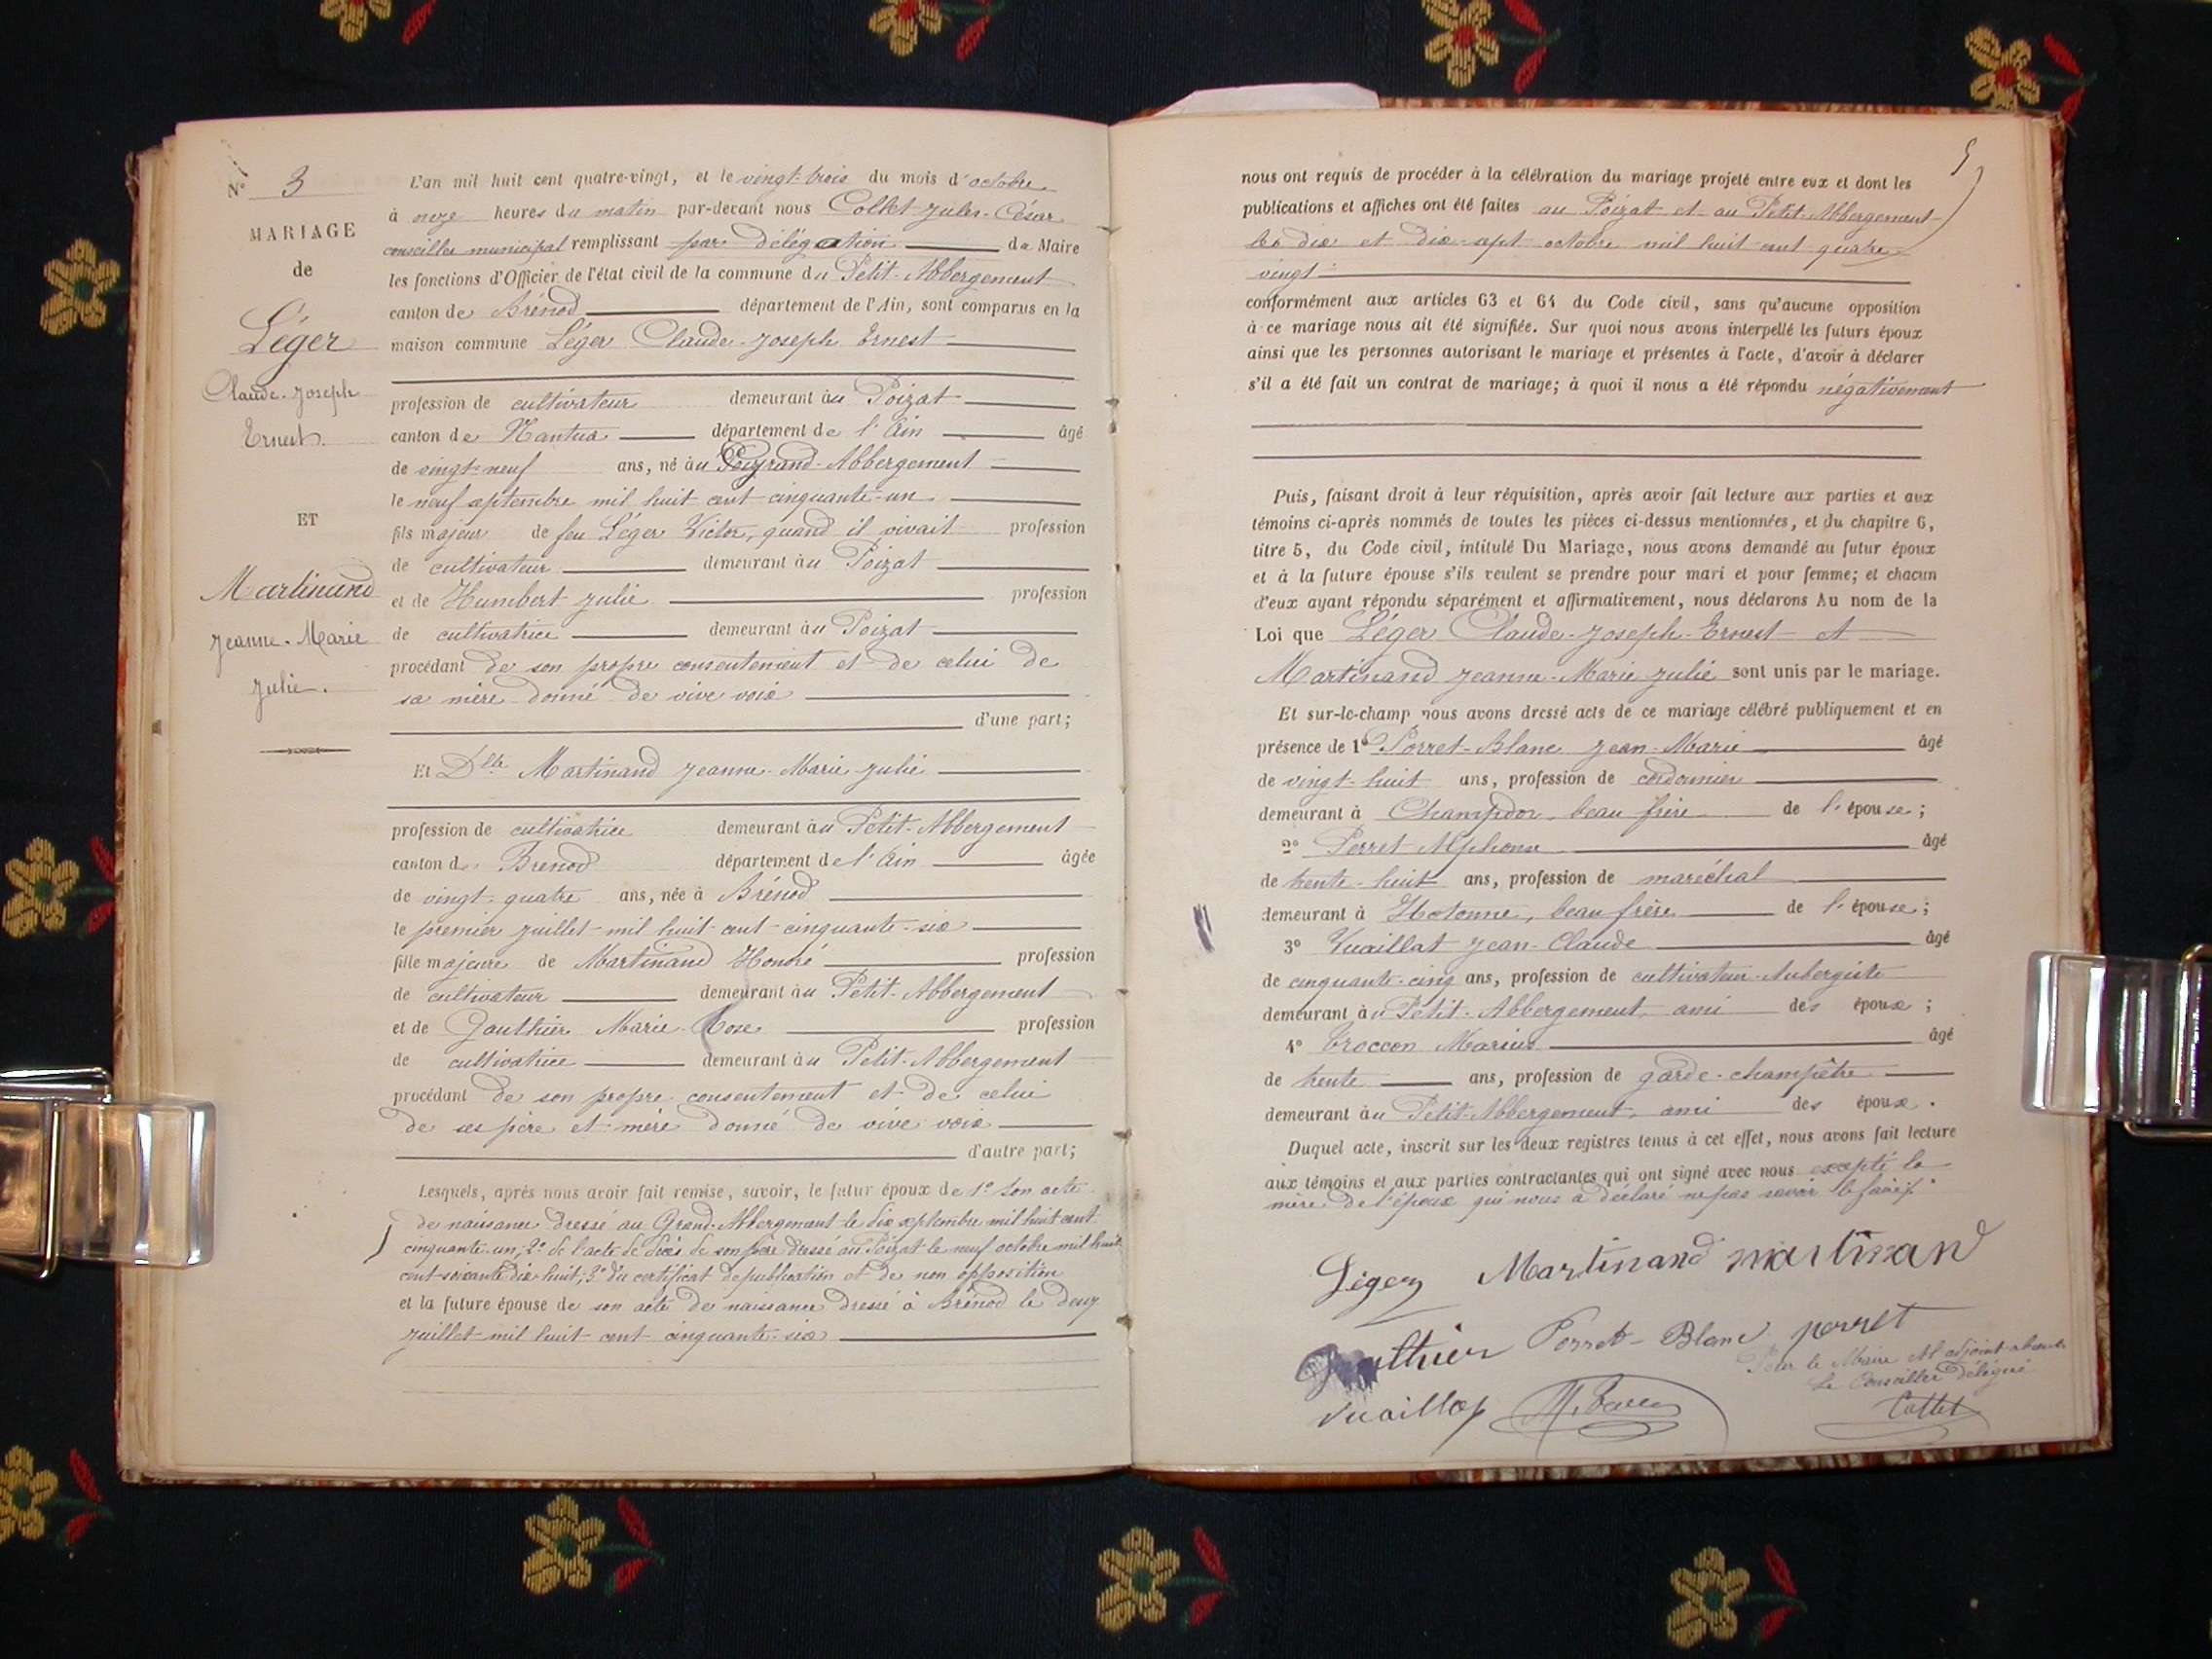 N° 3
MARIAGE
de
Léger
Claude-Joseph
Ernest.
ET
Martinand
Jeanne-Marie
Julie.
L'an mil huit cent quatre-vingt, et le vingt-trois du mois d'octobre
à onze heures du matin par-devant nous Collet Jules-César
conseiller municipal remplissant par délégation du Maire
les fonctions d'Officier de l'état civil de la commune du Petit-Abbergement
canton de Brénod département de l'Ain, sont comparus en la
maison commune Léger Claude-Joseph Ernest
profession de cultivateur demeurant au Poizat
canton de Nantua département de l'Ain âgé
de vingt-neuf ans, né au Grand-Abbergement
le neuf septembre mil huit cent cinquante-un
fils majeur de feu Léger Victor, quand il vivait profession
de cultivateur demeurant au Poizat
et de Humbert Julie profession
de cultivatrice demeurant au Poizat
procédant de son propre consentement et de celui de
sa mère donné de vive voix
d'une part;
Et Dlle Martinand Jeanne-Marie Julie
profession de cultivatrice demeurant au Petit-Abbergement
canton de Brenod département de l'Ain âgée
de vingt-quatre ans, née à Brénod
le premier juillet mil huit cent cinquante-six
fille majeure de Martinand Honoré profession
de cultivateur demeurant au Petit-Abbergement
et de Gauthier Marie-Rose profession
de cultivatrice demeurant au Petit-Abbergement
procédant de son propre consentement et de celui
de ses père et mère donné de vive voix
d'autre part;
Lesquels, après nous avoir fait remise, savoir, le futur époux de 1° son acte
de naissance dressé au Grand-Abbergement le dix septembre mil huit cent
cinquante-un; 2° de l'acte de décès de son père dressé au Poizat le neuf octobre mil huit
cent soixante dix huit; 3° du certificat de publication et de non opposition
et la future épouse de son acte de naissance dressé à Brénod le deux
juillet mil huit cent cinquante-six
5
nous ont requis de procéder à la célébration du mariage projeté entre eux et dont les
publications et affiches ont été faites au Poizat et au Petit-Abbergement
les dix et dix-sept octobre mil huit cent quatre-
vingt
conformément aux articles 63 et 64 du Code civil, sans qu'aucune opposition
à ce mariage nous ait été signifiée. Sur quoi nous avons interpellé les futurs époux
ainsi que les personnes autorisant le mariage et présentes à l'acte, d'avoir à déclarer
s'il a été fait un contrat de mariage; à quoi il nous a été répondu négativement
Puis, faisant droit à leur réquisition, après avoir fait lecture aux parties et aux
témoins ci-après nommés de toutes les pièces ci-dessus mentionnées, et du chapitre 6,
titre 5, du Code civil, intitulé Du Mariage, nous avons demandé au futur époux
et à la future épouse s'ils veulent se prendre pour mari et pour femme; et chacun
d'eux ayant répondu séparément et affirmativement, nous déclarons Au nom de la
Loi que Léger Claude-Joseph-Ernest et
Martinand Jeanne-Marie Julie sont unis par le mariage.
Et sur-le-champ nous avons dressé acte de ce mariage célébré publiquement et en
présence de 1° Perret-Blanc Jean-Marie âgé
de vingt-huit ans, profession de cordonnier
demeurant à Champdor, beau frère de l'épouse;
2° Perret Alphonse âgé
de trente-huit ans, profession de maréchal
demeurant à Hotonne, beau frère de l'épouse;
3° Vuaillat Jean-Claude âgé
de cinquante-cinq ans, profession de cultivateur-Aubergiste
demeurant au Petit-Abbergement, ami des époux;
4° Troccon Marius âgé
de trente ans, profession de garde-champêtre
demeurant au Petit-Abbergement, ami des époux.
Duquel acte, inscrit sur les deux registres tenus à cet effet, nous avons fait lecture
aux témoins et aux parties contractantes qui ont signé avec nous excepté la
mère de l'époux qui nous a déclaré ne pas savoir le faire.
Léger Martinand martinand
Gauthier Perret-Blanc perret
Pour le Maire et l'adjoint absents
Le Conseiller délégué
Vuaillat
Collet